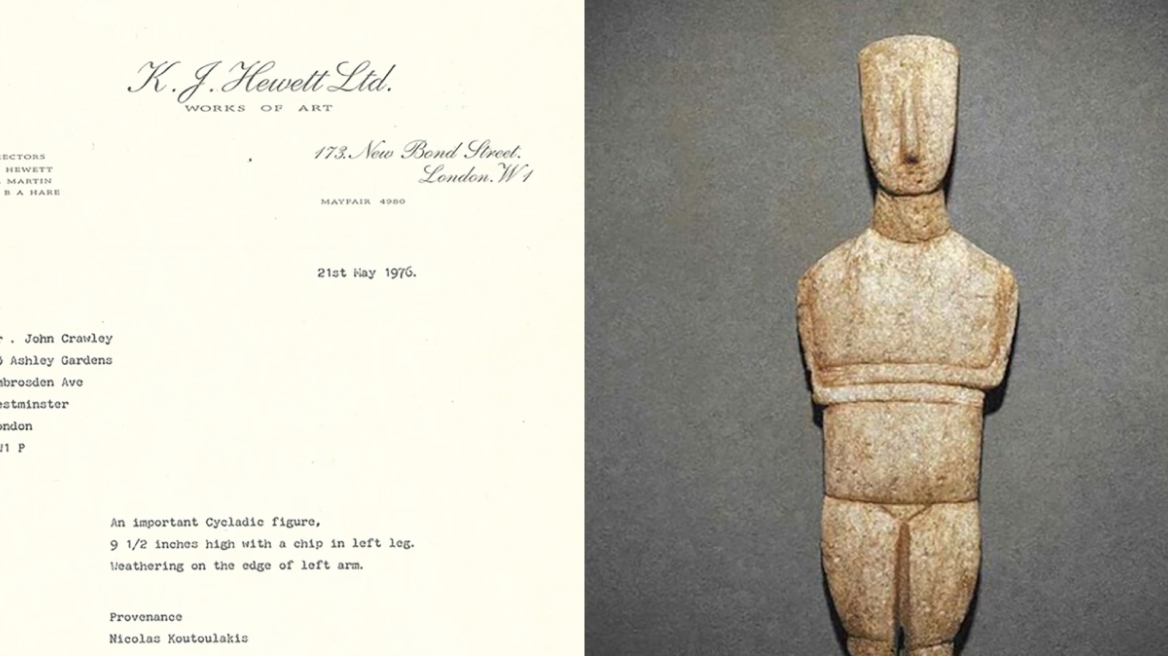 K. J. Hewett Ltd.
WORKS OF ART
ECTORS
HEWETT
MARTIN
B A HARE
173. New Bond Street.
London. W1
MAYFAIR 4980
21st May 1976.
. John Crawley
Ashley Gardens
mbrosden Ave
estminster
ondon
W1 P
An important Cycladic figure,
9 1/2 inches high with a chip in left leg.
Weathering on the edge of left arm.
Provenance
Nicolas Koutoulakis